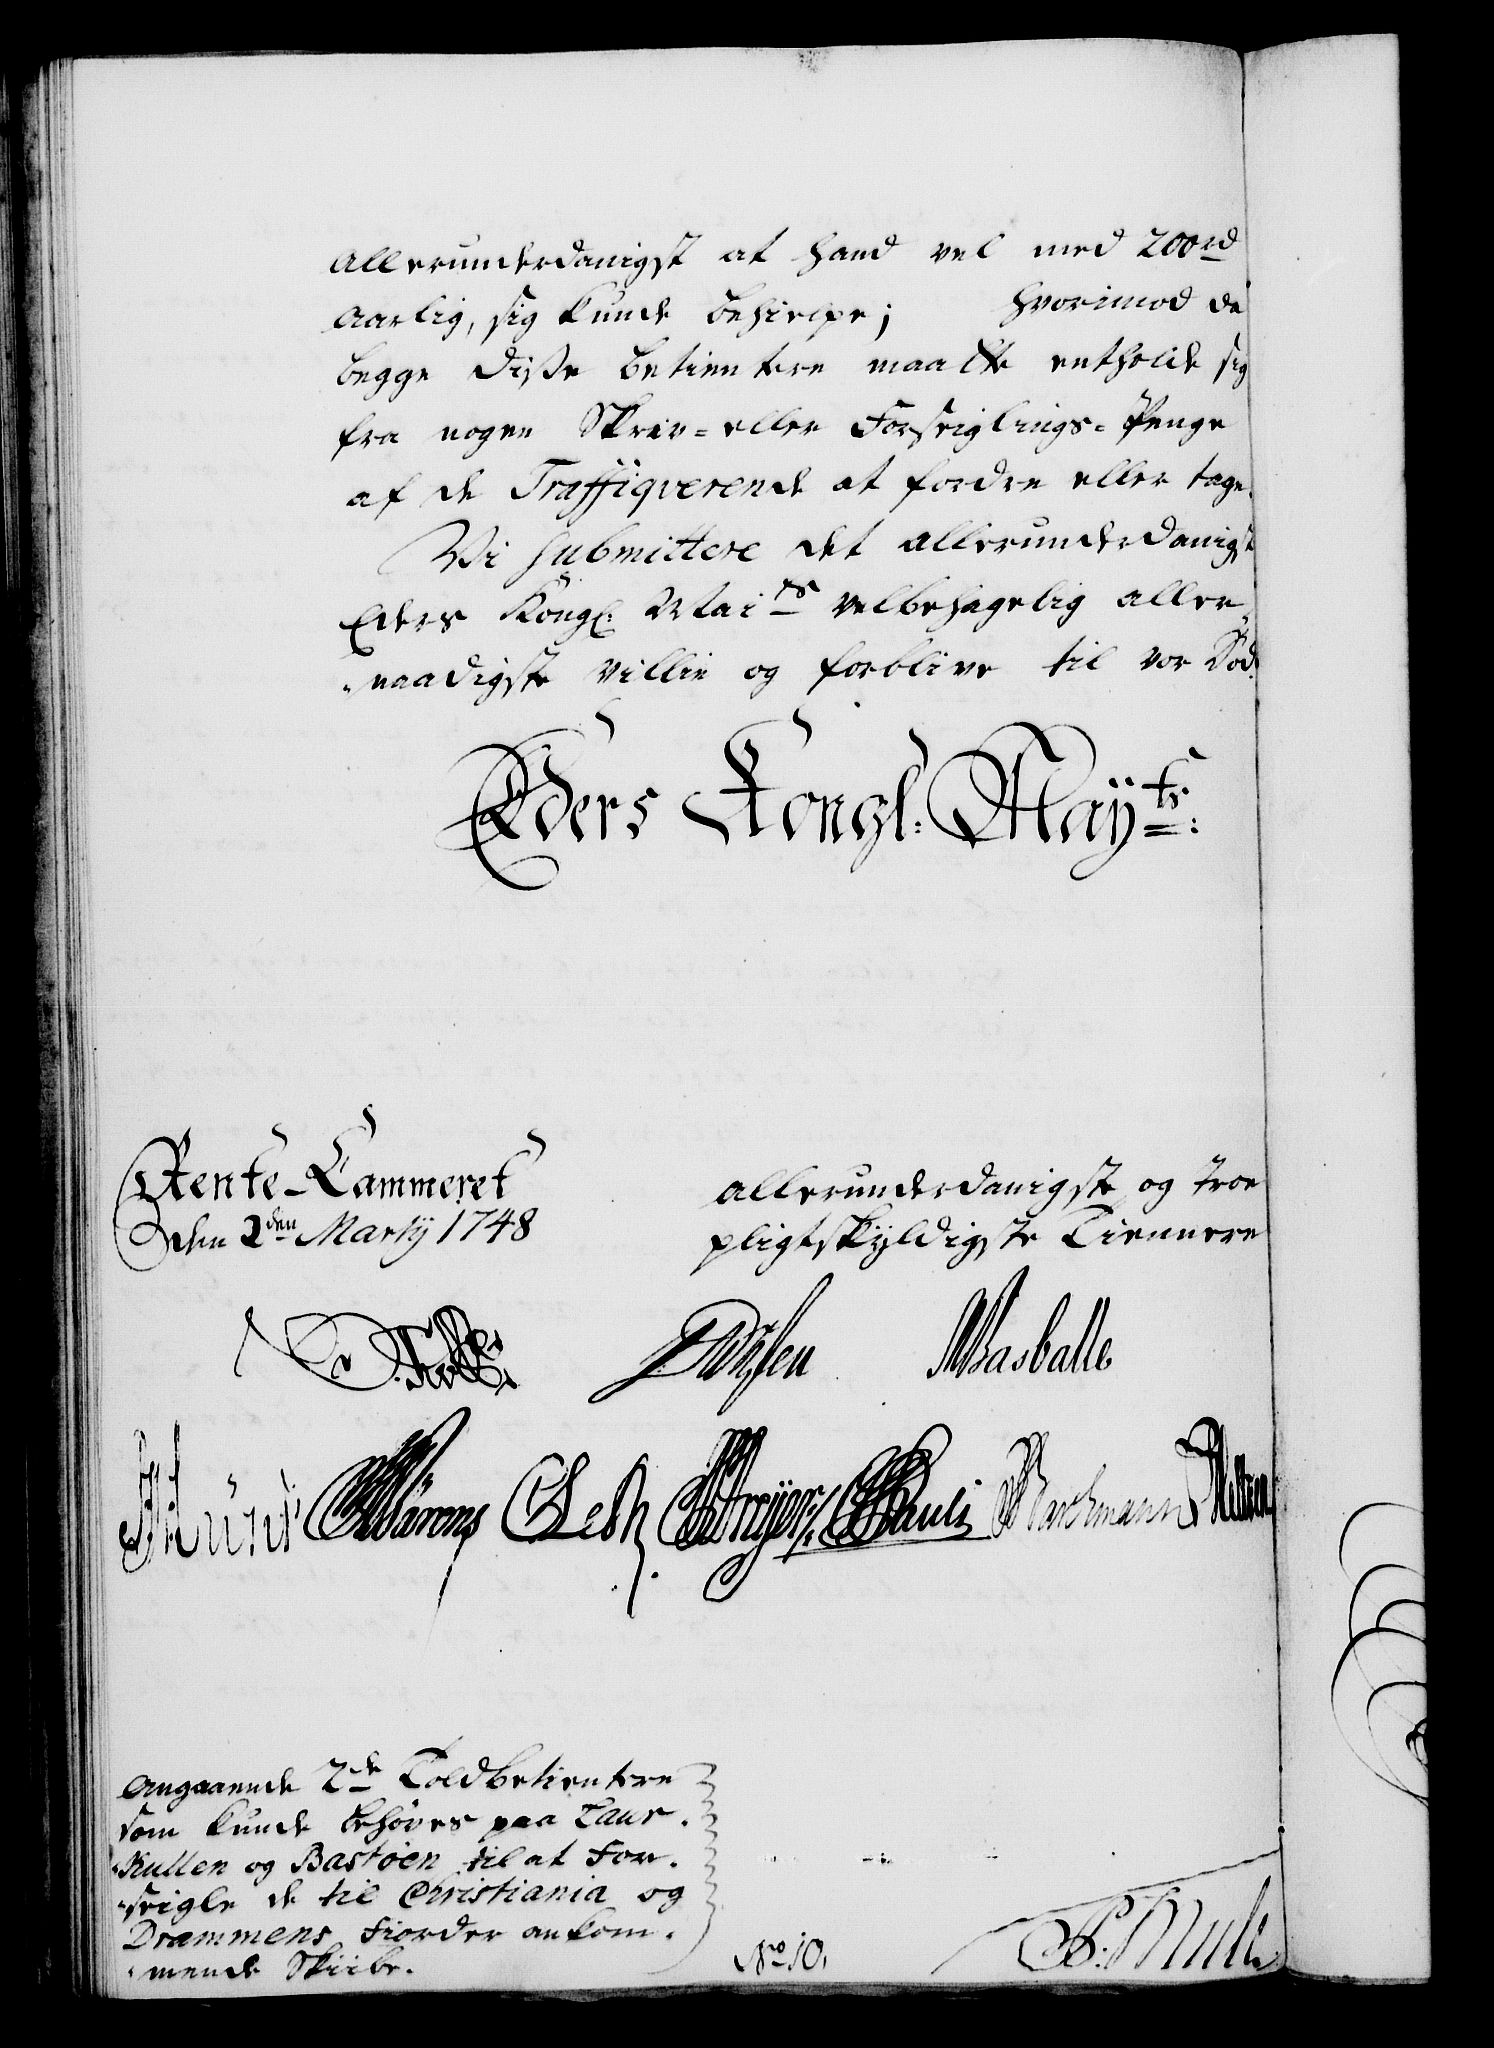 allerunderdanigst at hand vel med 200 rd
aarlig, sig kunde behielpe; hvorimod de
begge disse betientere maatte entholde sig
fra nogen Skriv- eller Forseiglings-Penge
af de Traffiqverende at fordre eller tage.
Vi submittere det allerunderdanigst
Eders Kongl. Mai.ts velbehagelig aller-
-naadigste villie og forblive til vor Död.
Eders Kongl: Maÿts:
Rente-Cammeret
den 2den Martÿ 1748
allerunderdanigst og troe
pligtskÿldigste Tiennere
Holst
Dorssen
Wasballe
Leth
Pauli
Angaaende 2de Toldbetientere
som kunde behøves paa Laur-
-Kullen og Bastöen til at For-
-seigle de til Christiania og
Drammens Fiorder ankom-
-mende Skiibe.
No 10.